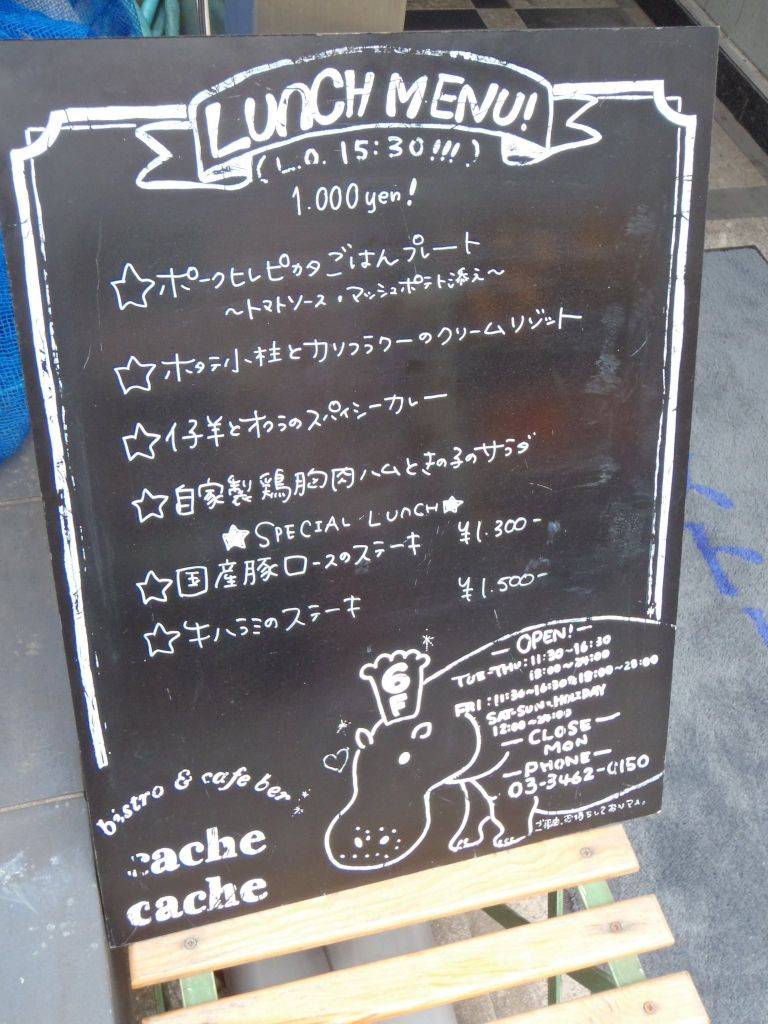 LUNCH MENU!
(L.O. 15:30!!!)
1.000yen!
☆ポークヒレピカタごはんプレート
〜トマトソース・マッシュポテト添え〜
☆ホタテ小柱とカリフラワーのクリームリゾット
☆仔羊とオクラのスパイシーカレー
☆自家製鶏胸肉ハムときの子のサラダ
★SPECIAL LUNCH★
☆国産豚ロースのステーキ ¥1.300-
☆牛ハラミのステーキ ¥1.500-
6F
— OPEN! —
TUE-THU: 11:30~16:30
18:00~24:00
FRI: 11:30~16:30 & 18:00~28:00
SAT-SUN HOLIDAY
12:00~24:00
— CLOSE —
MON
— PHONE —
03-3462-0150
bistro & cafe ber
cache
cache